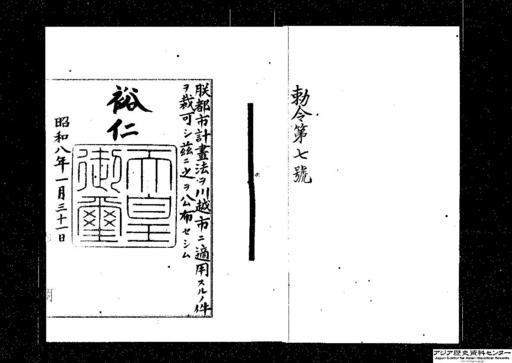 勅令第七號
朕都市計畫法ヲ川越市ニ適用スルノ件
ヲ裁可シ茲ニ之ヲ公布セシム
裕仁
天皇
御璽
昭和八年一月三十一日
アジア歴史資料センター
Japan Center for Asian Historical Records